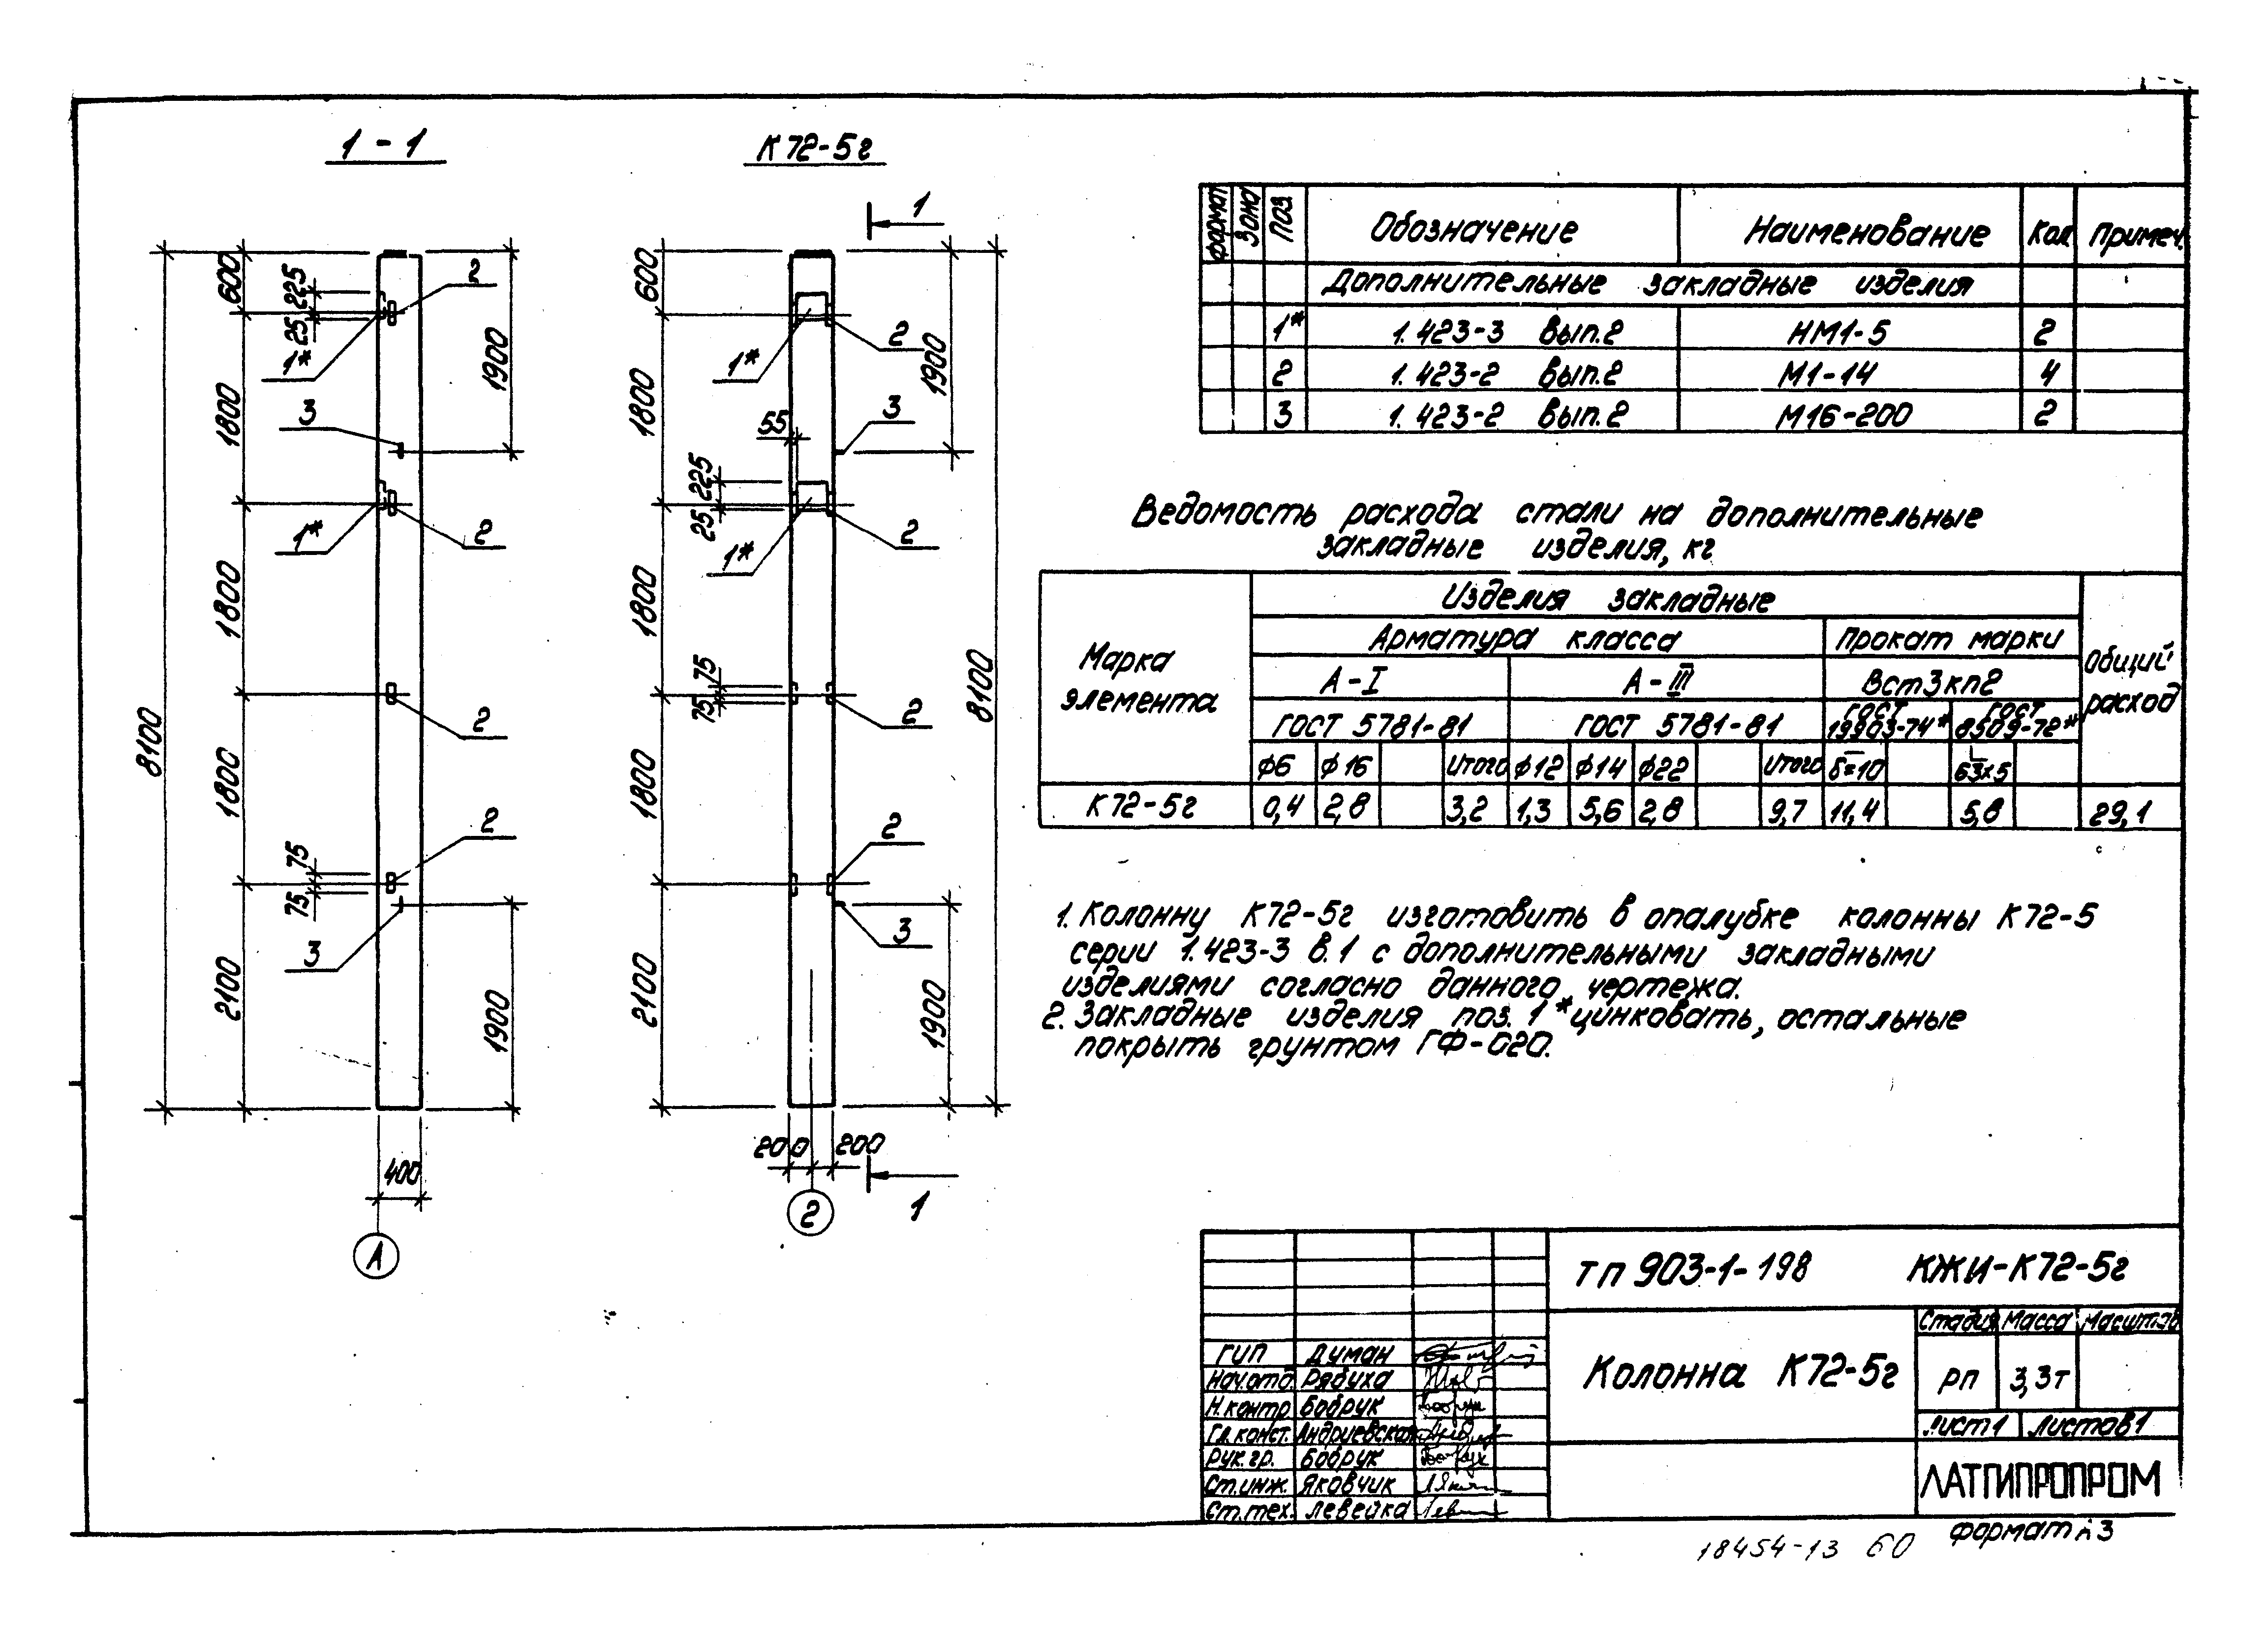 1 - 1
К72-5г
1
8100
600
225
25
1*
2
1900
1800
3
1*
2
1800
2
1800
2
75
75
3
2100
1900
400
А
600
1*
2
1900
1800
55
3
225
25
1*
2
1800
75
75
2
8100
1800
2
3
2100
1900
200 200
2
1
формат Зона Поз. Обозначение Наименование Кол Примеч.
Дополнительные закладные изделия
1* 1.423-3 Вып.2 НМ1-5 2
2 1.423-2 Вып.2 М1-14 4
3 1.423-2 Вып.2 М16-200 2
Ведомость расхода стали на дополнительные
закладные изделия, кг
Марка элемента
Изделия закладные
Общий расход
Арматура класса Прокат марки
А-I А-III Вст3кп2
ГОСТ 5781-81 ГОСТ 5781-81 ГОСТ 19903-74* ГОСТ 8509-72*
ϕ6 ϕ16 Итого ϕ12 ϕ14 ϕ22 Итого δ=10 63х5
К72-5г 0,4 2,8 3,2 1,3 5,6 2,8 9,7 11,4 5,8 29,1
1. Колонну К72-5г изготовить в опалубке колонны К72-5
серии 1.423-3 в.1 с дополнительными закладными
изделиями согласно данного чертежа.
2. Закладные изделия поз. 1* цинковать, остальные
покрыть грунтом ГФ-020.
ТП 903-1-198 КЖИ-К72-5г
Колонна К72-5г
Стадия Масса Масштаб
РП 3,3т
Лист 1 Листов 1
ЛАТГИПРОПРОМ
ГИП Думан
Нач.отд Рябуха
Н.контр Бобрук
Гл.конст. Андриевская
Рук.гр. Бобрук
Ст.инж. Яковчик
Ст.тех. Левейка
18454-13 60
Формат А3